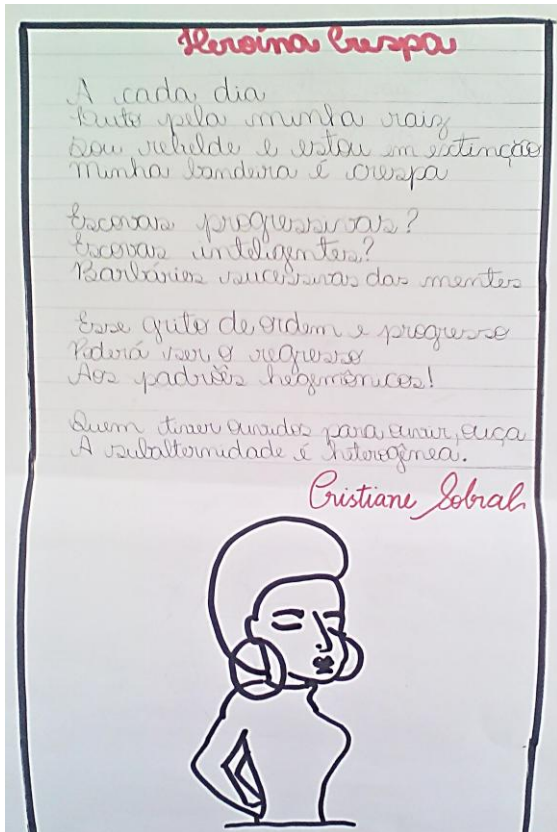 Heroína Crespa
A cada dia
Luto pela minha raiz
Sou rebelde e estou em extinção
Minha bandeira é crespa
Escovas progressivas?
Escovas inteligentes?
Barbáries sucessivas das mentes
Esse grito de ordem e progresso
Poderá ser o regresso
Aos padrões hegemônicos!
Quem tiver ouvidos para ouvir, ouça
A subalternidade é heterogênea.
Cristiane Sobral